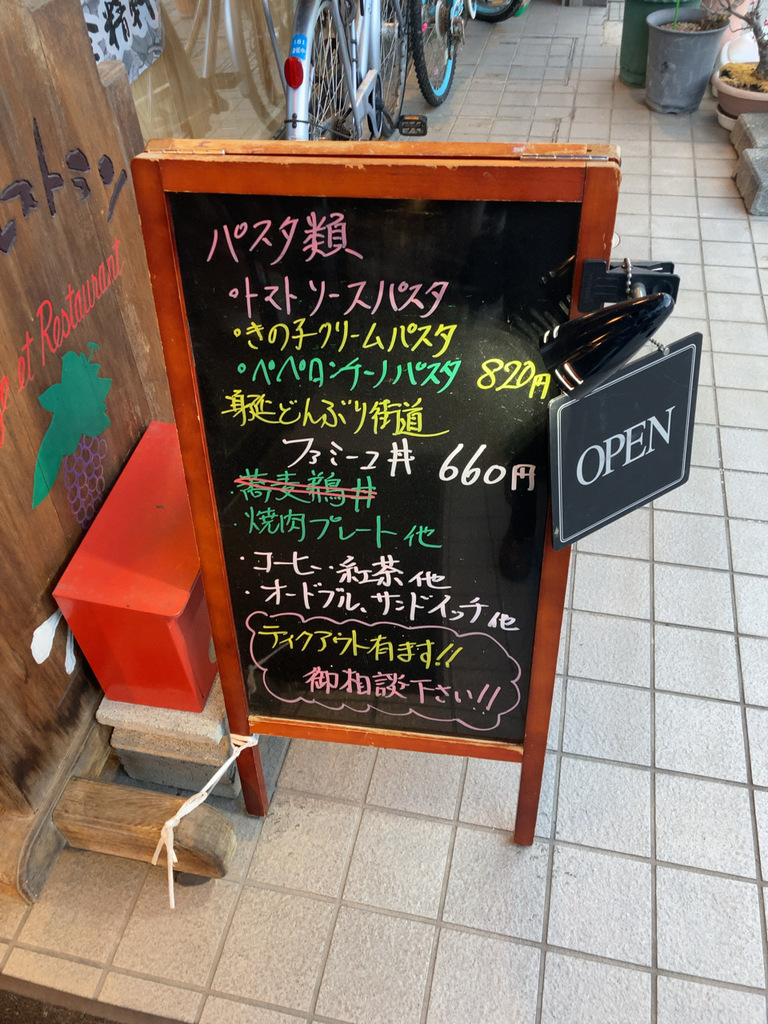 パスタ類
・トマトソースパスタ
・きの子クリームパスタ
・ペペロンチーノパスタ 820円
身延どんぶり街道
ファミーユ丼 660円
・蕎麦鵜丼
・焼肉プレート他
・コーヒー・紅茶他
・オードブル、サンドイッチ他
テイクアウト有ます!!
御相談下さい!!
OPEN
ストラン
et Restaurant